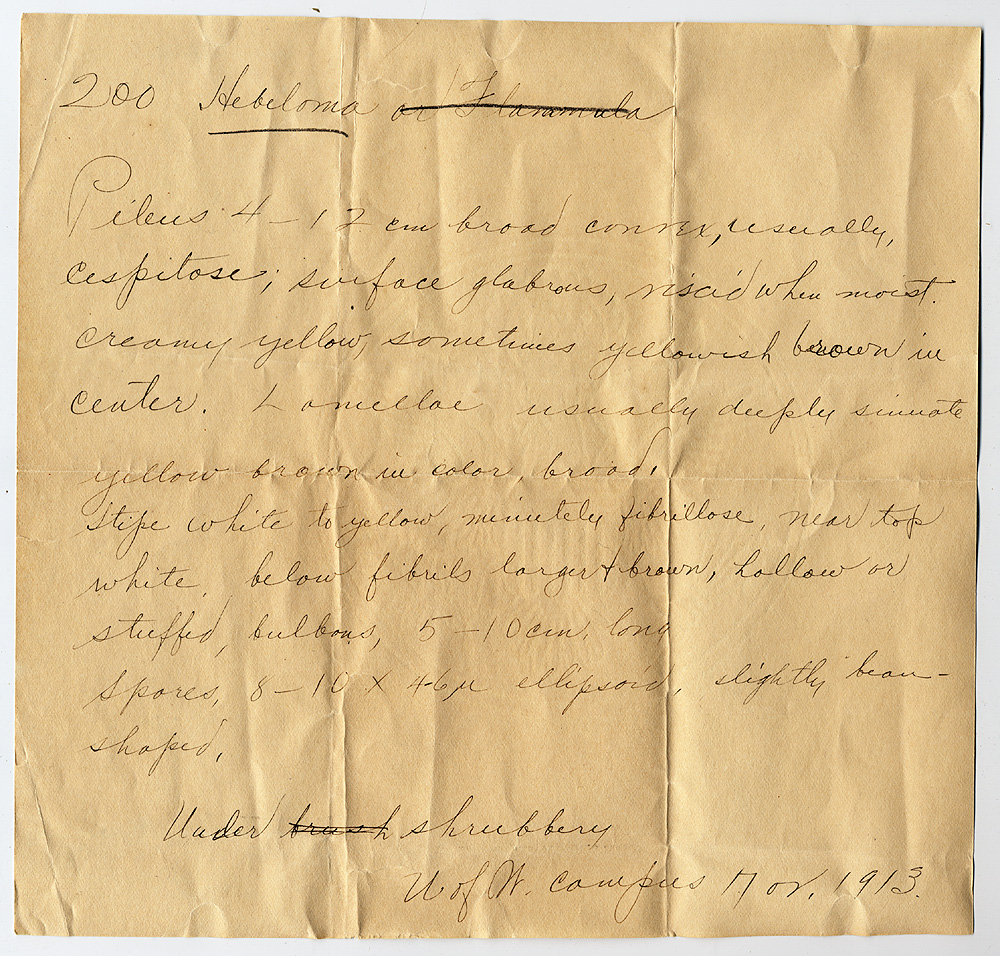 200 Hebeloma or Flammula
Pileus 4-12 cm broad convex, usually,
cespitose; surface glabrous, viscid when moist.
creamy yellow, sometimes yellowish brown in
center. Lamellae usually deeply sinuate
yellow brown in color, broad.
Stipe white to yellow, minutely fibrillose, near top
white, below fibrils larger + brown, hollow or
stuffed, bulbous, 5-10 cm. long
Spores, 8-10 X 4-6µ ellipsoid, slightly bean-
shaped.
Under brush shrubbery
U of W. campus Nov. 1913.